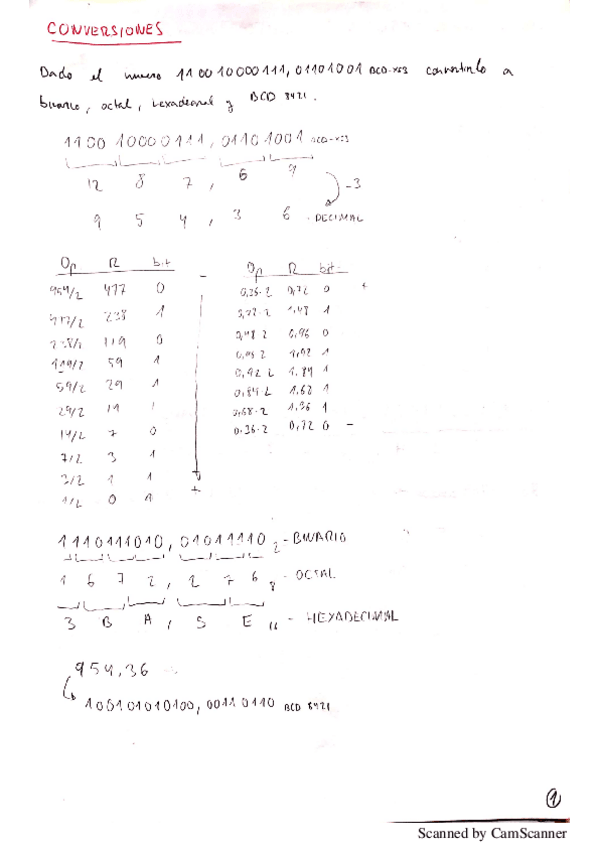 CONVERSIONES
Dado el numero 110010000111,01101001 BCD-XS3 convertirlo a
binario, octal, hexadecimal y BCD 8421.
110010000111,01101001 BCD-XS3
12 8 7 , 6 9
-3
9 5 4 , 3 6 - DECIMAL
Op R bit -
954/2 477 0
477/2 238 1
238/2 119 0
119/2 59 1
59/2 29 1
29/2 14 1
14/2 7 0
7/2 3 1
3/2 1 1
1/2 0 1
+
Op R bit
0,36·2 0,72 0 +
0,72·2 1,44 1
0,96 0
1,92 1
0,92·2 1.84 1
0,84·2 1.68 1
0,68·2 1.36 1
0.36·2 0,72 0 -
1110111010,01011110 2 - BINARIO
1 6 7 2 , 2 7 6 8 - OCTAL
3 B A , 5 E 16 - HEXADECIMAL
954,36
100101010100,00110110 BCD 8421
1
Scanned by CamScanner